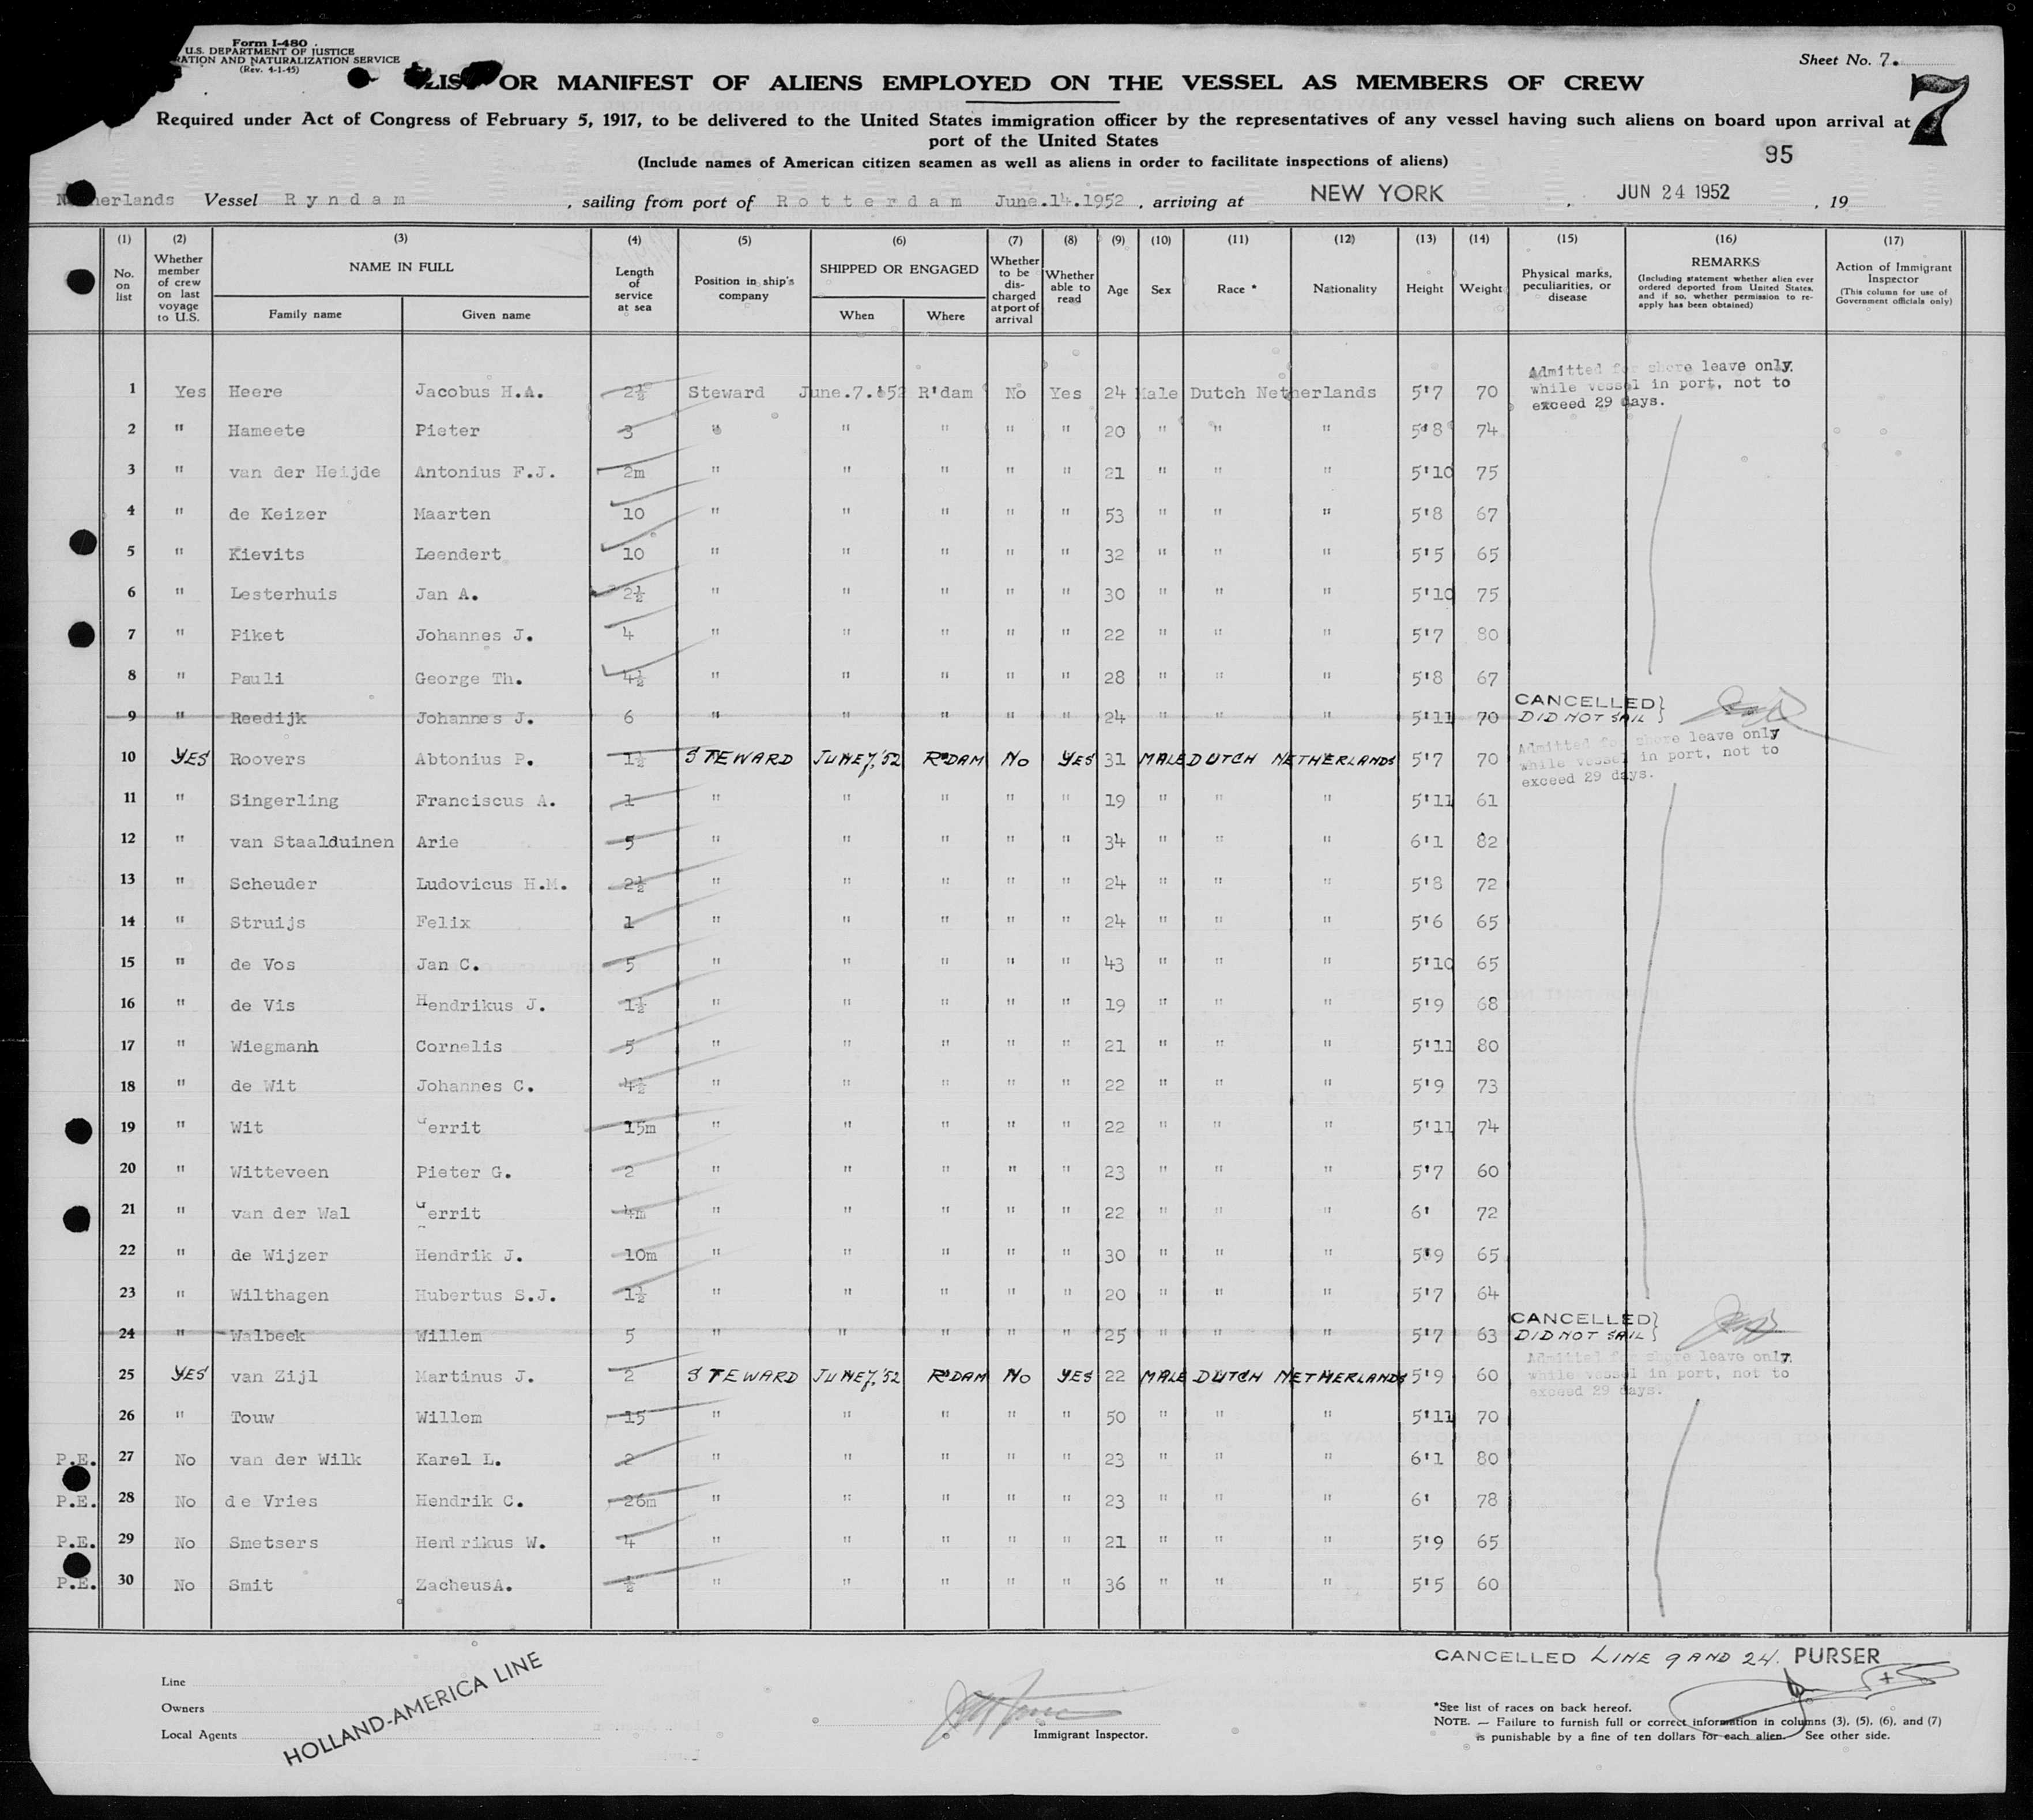 Form I-480
U.S. DEPARTMENT OF JUSTICE
RATION AND NATURALIZATION SERVICE
(Rev. 4-1-45)
Sheet No. 7.
7
LIST OR MANIFEST OF ALIENS EMPLOYED ON THE VESSEL AS MEMBERS OF CREW
Required under Act of Congress of February 5, 1917, to be delivered to the United States immigration officer by the representatives of any vessel having such aliens on board upon arrival at
port of the United States
95
(Include names of American citizen seamen as well as aliens in order to facilitate inspections of aliens)
Netherlands Vessel Ryndam, sailing from port of Rotterdam June.14.1952, arriving at NEW YORK, JUN 24 1952, 19
(1) No. on list
(2) Whether member of crew on last voyage to U.S.
(3) NAME IN FULL Family name Given name
(4) Length of service at sea
(5) Position in ship's company
(6) SHIPPED OR ENGAGED When Where
(7) Whether to be discharged at port of arrival
(8) Whether able to read
(9) Age
(10) Sex
(11) Race *
(12) Nationality
(13) Height
(14) Weight
(15) Physical marks, peculiarities, or disease
(16) REMARKS (Including statement whether alien ever ordered deported from United States, and if so, whether permission to re-apply has been obtained)
(17) Action of Immigrant Inspector (This column for use of Government officials only)
1 Yes Heere Jacobus H.A. 2½ Steward June.7.'52 R'dam No Yes 24 Male Dutch Netherlands 5'7 70 Admitted for shore leave only while vessel in port, not to exceed 29 days.
2 " Hameete Pieter 3 " " " " " 20 " " " 5'8 74
3 " van der Heijde Antonius F.J. 2m " " " " " 21 " " " 5'10 75
4 " de Keizer Maarten 10 " " " " " 53 " " " 5'8 67
5 " Kievits Leendert 10 " " " " " 32 " " " 5'5 65
6 " Lesterhuis Jan A. 2½ " " " " " 30 " " " 5'10 75
7 " Piket Johannes J. 4 " " " " " 22 " " " 5'7 80
8 " Pauli George Th. 4½ " " " " " 28 " " " 5'8 67
9 " Reedijk Johannes J. 6 " " " " " 24 " " " 5'11 70 CANCELLED} DID NOT SAIL}
10 YES Roovers Abtonius P. 1½ STEWARD JUNE 7,'52 R'DAM NO YES 31 MALE DUTCH NETHERLANDS 5'7 70 Admitted for shore leave only while vessel in port, not to exceed 29 days.
11 " Singerling Franciscus A. 1 " " " " " 19 " " " 5'11 61
12 " van Staalduinen Arie 5 " " " " " 34 " " " 6'1 82
13 " Scheuder Ludovicus H.M. 2½ " " " " " 24 " " " 5'8 72
14 " Struijs Felix 1 " " " " " 24 " " " 5'6 65
15 " de Vos Jan C. 5 " " " " " 43 " " " 5'10 65
16 " de Vis Hendrikus J. 1½ " " " " " 19 " " " 5'9 68
17 " Wiegmanh Cornelis 5 " " " " " 21 " " " 5'11 80
18 " de Wit Johannes C. 4½ " " " " " 22 " " " 5'9 73
19 " Wit Gerrit 15m " " " " " 22 " " " 5'11 74
20 " Witteveen Pieter G. 2 " " " " " 23 " " " 5'7 60
21 " van der Wal Gerrit 4m " " " " " 22 " " " 6' 72
22 " de Wijzer Hendrik J. 10m " " " " " 30 " " " 5'9 65
23 " Wilthagen Hubertus S.J. 1½ " " " " " 20 " " " 5'7 64
24 " Walbeek Willem 5 " " " " " 25 " " " 5'7 63 CANCELLED} DID NOT SAIL}
25 YES van Zijl Martinus J. 2 STEWARD JUNE 7,'52 R'DAM NO YES 22 MALE DUTCH NETHERLANDS 5'9 60 Admitted for shore leave only while vessel in port, not to exceed 29 days.
26 " Touw Willem 15 " " " " " 50 " " " 5'11 70
P.E. 27 No van der Wilk Karel L. 2 " " " " " 23 " " " 6'1 80
P.E. 28 No de Vries Hendrik C. 26m " " " " " 23 " " " 6' 78
P.E. 29 No Smetsers Hendrikus W. 4 " " " " " 21 " " " 5'9 65
P.E. 30 No Smit ZacheusA. ½ " " " " " 36 " " " 5'5 60
CANCELLED LINE 9 AND 24. PURSER
Line
Owners
Local Agents
HOLLAND-AMERICA LINE
Immigrant Inspector.
*See list of races on back hereof.
NOTE. — Failure to furnish full or correct information in columns (3), (5), (6), and (7)
is punishable by a fine of ten dollars for each alien. See other side.